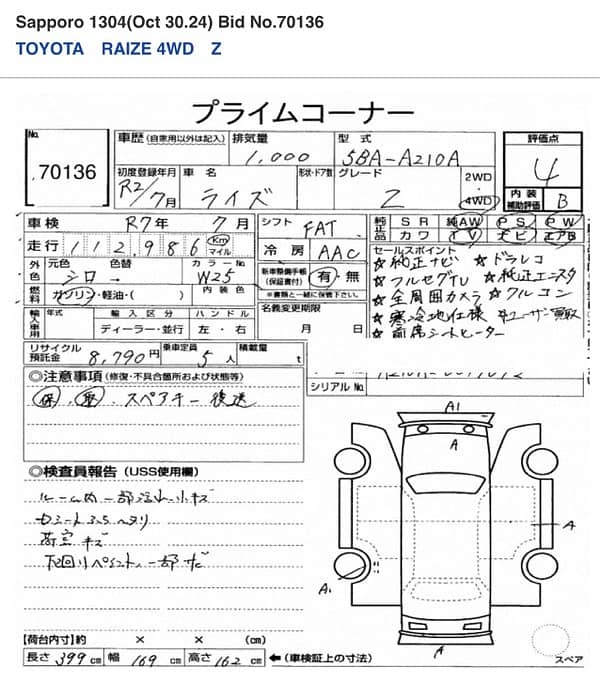 Sapporo 1304(Oct 30.24) Bid No.70136
TOYOTA RAIZE 4WD Z
プライムコーナー
No. 70136
車歴 (自家用以外は記入) 排気量 1,000 型式 5BA-A210A
評価点 4
初度登録年月 R2/7月 車名 ライズ 形状・ドア数 グレード Z 2WD 4WD
内装補助評価 B
車検 R7年 7月 シフト FAT
純正品 SR 純AW PS PW
カワ TV ナビ エアB
走行 112,986 Km マイル 冷房 AAC
セールスポイント
外色 元色 シロ 色替 カラーNo W25
新車整備手帳(保証書付) 有・無
※書類と一緒に保管下さい。
☆純正ナビ ☆ドラレコ
☆フルセグTV ☆純正エンスタ
☆全周囲カメラ ☆フルコン
☆寒冷地仕様 ☆ユーザー買取
☆前席シートヒーター
燃料 ガソリン・軽油・( ) 内装色
名義変更期限 月 日
輸入車用 年式 輸入区分 ハンドル
ディーラー・並行 左・右
リサイクル預託金 8,790円 乗車定員 5人 積載量 t
シリアルNo.
◎注意事項 (修復・不具合箇所および状態等)
保 取 スペアキー後送
◎検査員報告 (USS使用欄)
ルーム内一部汚れ小キズ
Dシート スレ ヘタリ
荷室キズ
下回りペイント、一部サビ
A1
A
A
A1
A
スペア
【荷台内寸】約 × × (cm)
長さ 399 cm 幅 169 cm 高さ 162 cm ←(車検証上の寸法)